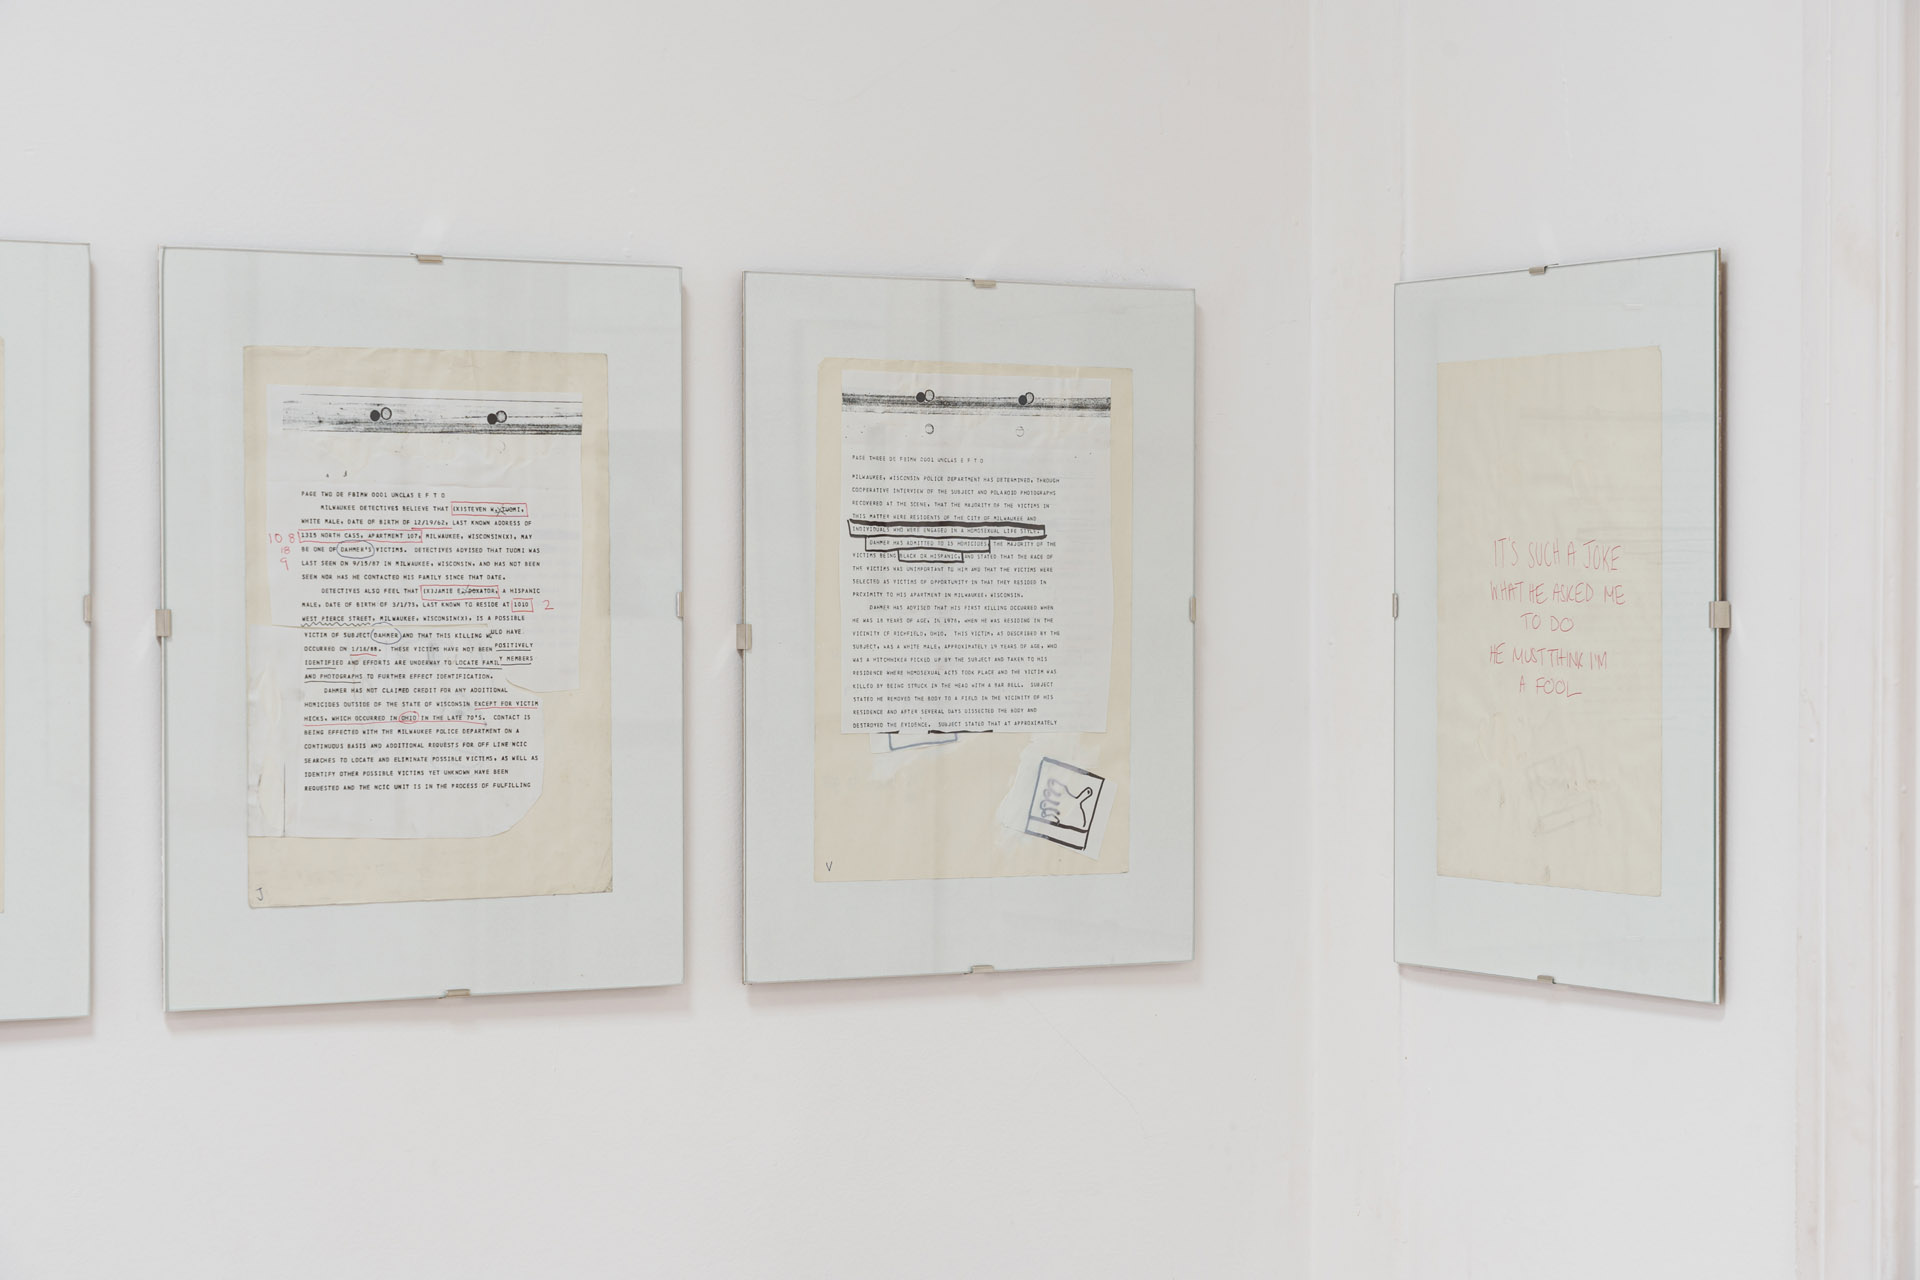 PAGE TWO DE FBIMW 0001 UNCLAS E F T O
MILWAUKEE DETECTIVES BELIEVE THAT (X)STEVEN W. TUOMI,
WHITE MALE, DATE OF BIRTH OF 12/19/62, LAST KNOWN ADDRESS OF
10 8 1315 NORTH CASS, APARTMENT 107, MILWAUKEE, WISCONSIN(X), MAY
18
BE ONE OF DAHMER'S VICTIMS. DETECTIVES ADVISED THAT TUOMI WAS
9
LAST SEEN ON 9/15/87 IN MILWAUKEE, WISCONSIN, AND HAS NOT BEEN
SEEN NOR HAS HE CONTACTED HIS FAMILY SINCE THAT DATE.
DETECTIVES ALSO FEEL THAT (X)JAMIE E. DOXATOR, A HISPANIC
MALE, DATE OF BIRTH OF 3/1/73, LAST KNOWN TO RESIDE AT 1010 2
WEST PIERCE STREET, MILWAUKEE, WISCONSIN(X), IS A POSSIBLE
VICTIM OF SUBJECT DAHMER AND THAT THIS KILLING WOULD HAVE
OCCURRED ON 1/18/88. THESE VICTIMS HAVE NOT BEEN POSITIVELY
IDENTIFIED AND EFFORTS ARE UNDERWAY TO LOCATE FAMILY MEMBERS
AND PHOTOGRAPHS TO FURTHER EFFECT IDENTIFICATION.
DAHMER HAS NOT CLAIMED CREDIT FOR ANY ADDITIONAL
HOMICIDES OUTSIDE OF THE STATE OF WISCONSIN EXCEPT FOR VICTIM
HICKS, WHICH OCCURRED IN OHIO IN THE LATE 70'S. CONTACT IS
BEING EFFECTED WITH THE MILWAUKEE POLICE DEPARTMENT ON A
CONTINUOUS BASIS AND ADDITIONAL REQUESTS FOR OFF LINE NCIC
SEARCHES TO LOCATE AND ELIMINATE POSSIBLE VICTIMS, AS WELL AS
IDENTIFY OTHER POSSIBLE VICTIMS YET UNKNOWN HAVE BEEN
REQUESTED AND THE NCIC UNIT IS IN THE PROCESS OF FULFILLING
J
PAGE THREE DE FBIMW 0001 UNCLAS E F T O
MILWAUKEE, WISCONSIN POLICE DEPARTMENT HAS DETERMINED, THROUGH
COOPERATIVE INTERVIEW OF THE SUBJECT AND POLAROID PHOTOGRAPHS
RECOVERED AT THE SCENE, THAT THE MAJORITY OF THE VICTIMS IN
THIS MATTER WERE RESIDENTS OF THE CITY OF MILWAUKEE AND
INDIVIDUALS WHO WERE ENGAGED IN A HOMOSEXUAL LIFE STYLE.
DAHMER HAS ADMITTED TO 15 HOMICIDES, THE MAJORITY OF THE
VICTIMS BEING BLACK OR HISPANIC, AND STATED THAT THE RACE OF
THE VICTIMS WAS UNIMPORTANT TO HIM AND THAT THE VICTIMS WERE
SELECTED AS VICTIMS OF OPPORTUNITY IN THAT THEY RESIDED IN
PROXIMITY TO HIS APARTMENT IN MILWAUKEE, WISCONSIN.
DAHMER HAS ADVISED THAT HIS FIRST KILLING OCCURRED WHEN
HE WAS 18 YEARS OF AGE, IN 1978, WHEN HE WAS RESIDING IN THE
VICINITY OF RICHFIELD, OHIO. THIS VICTIM, AS DESCRIBED BY THE
SUBJECT, WAS A WHITE MALE, APPROXIMATELY 19 YEARS OF AGE, WHO
WAS A HITCHHIKER PICKED UP BY THE SUBJECT AND TAKEN TO HIS
RESIDENCE WHERE HOMOSEXUAL ACTS TOOK PLACE AND THE VICTIM WAS
KILLED BY BEING STRUCK IN THE HEAD WITH A BAR BELL. SUBJECT
STATED HE REMOVED THE BODY TO A FIELD IN THE VICINITY OF HIS
RESIDENCE AND AFTER SEVERAL DAYS DISSECTED THE BODY AND
DESTROYED THE EVIDENCE. SUBJECT STATED THAT AT APPROXIMATELY
V
IT'S SUCH A JOKE
WHAT HE ASKED ME
TO DO
HE MUST THINK I'M
A FOOL